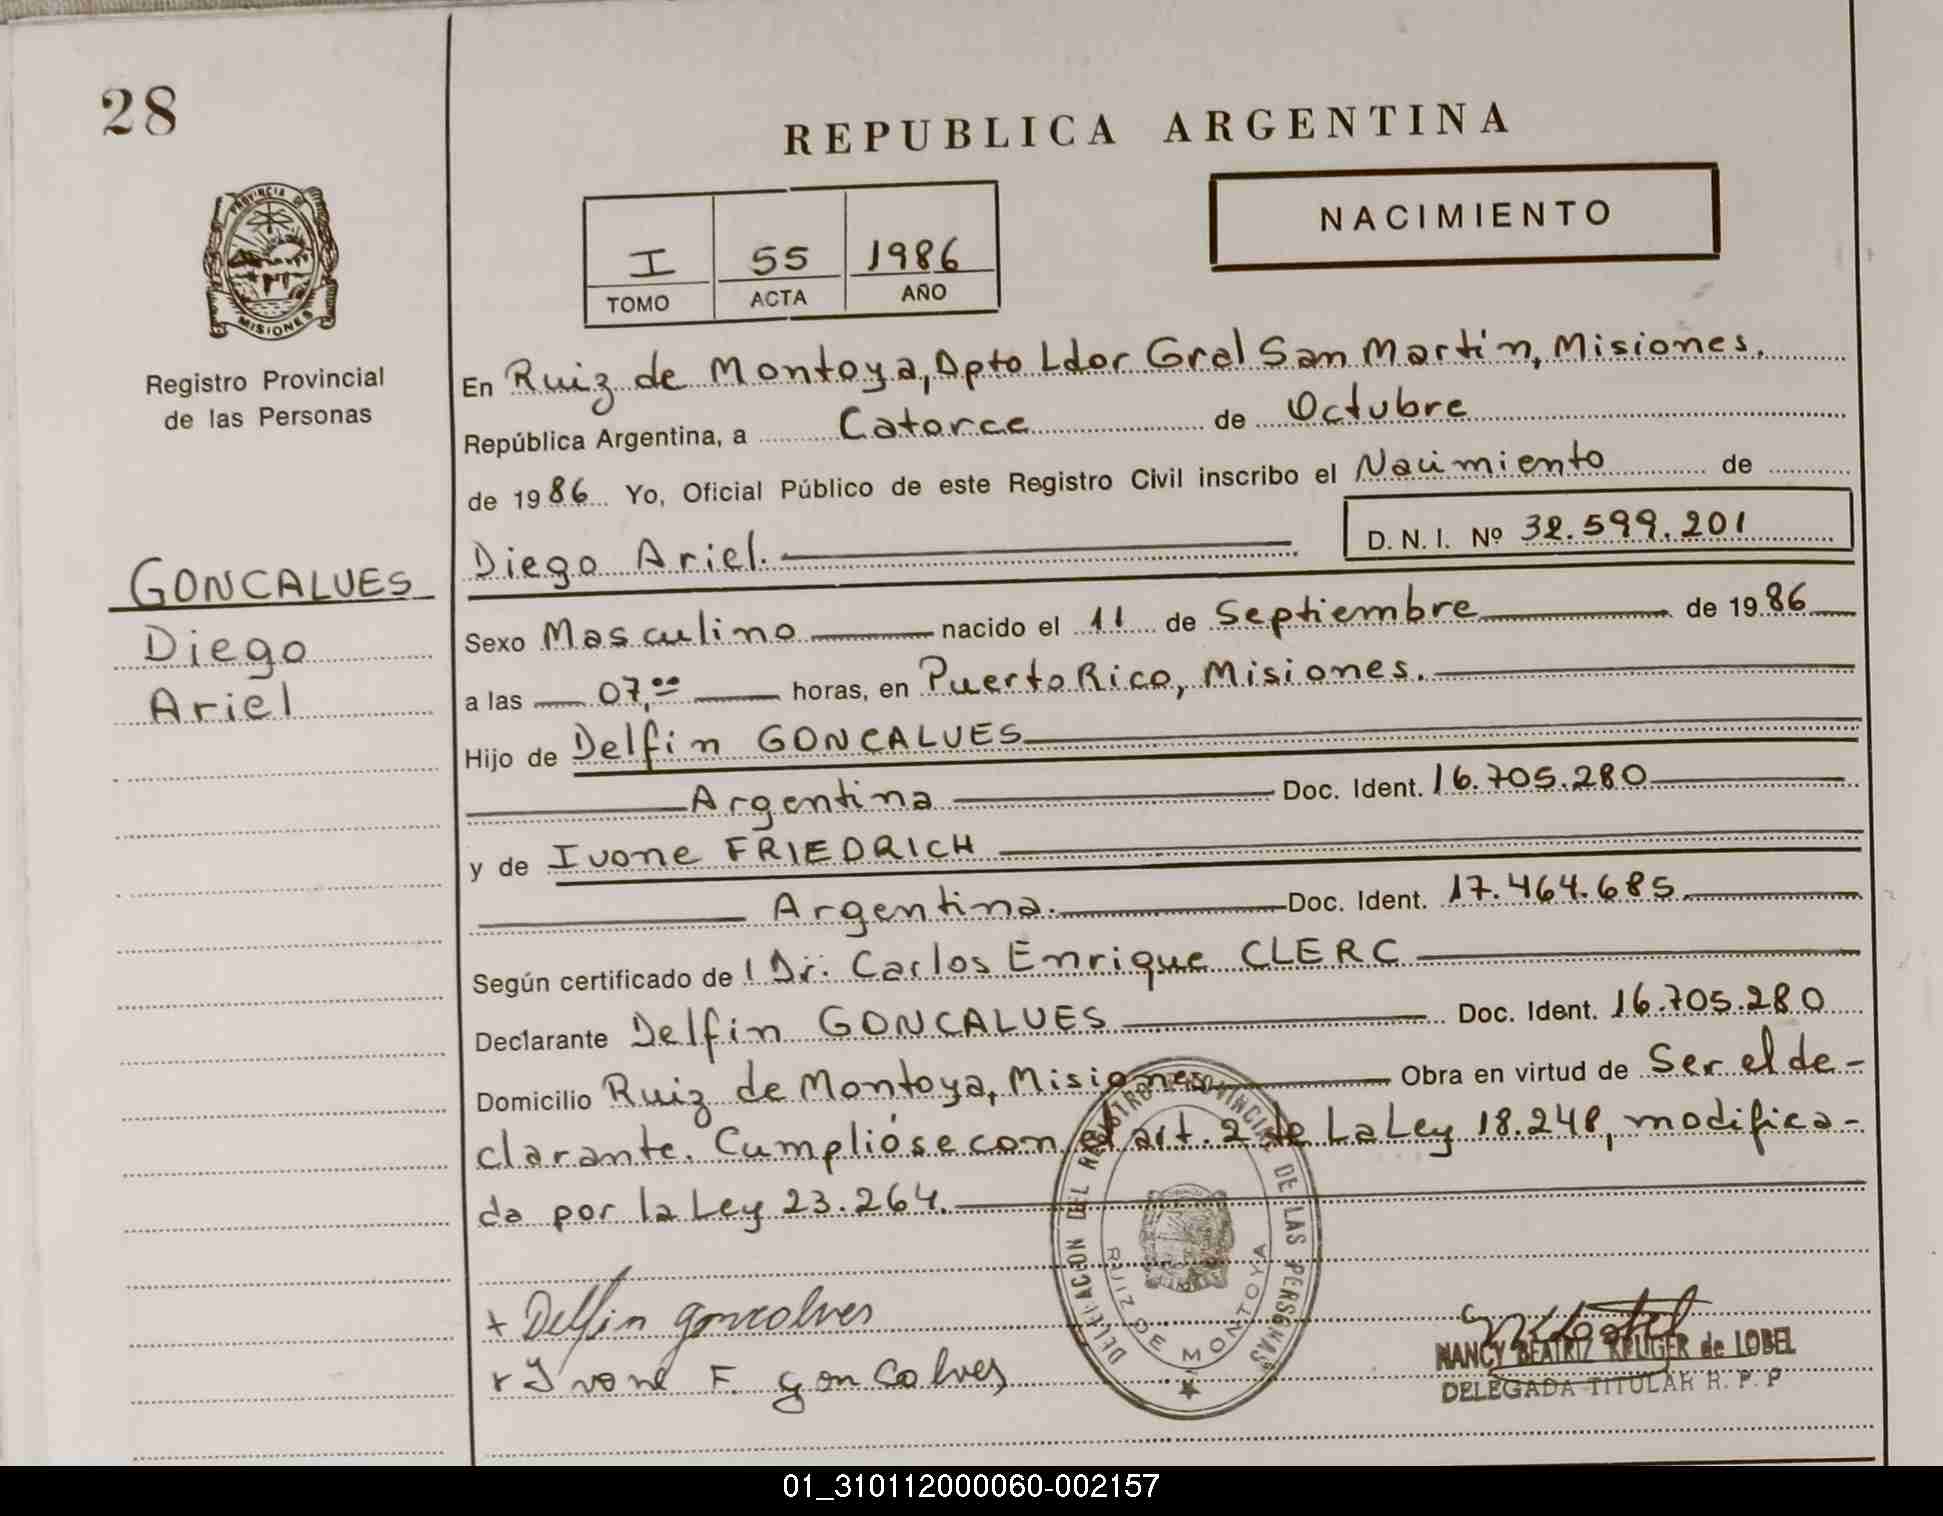 28
REPUBLICA ARGENTINA
NACIMIENTO
I 55 1986
TOMO ACTA AÑO
PROVINCIA DE
MISIONES
Registro Provincial
de las Personas
GONCALVES
Diego
Ariel
En Ruiz de Montoya, Dpto Ldor Gral San Martín, Misiones.
República Argentina, a Catorce de Octubre
de 1986 Yo, Oficial Público de este Registro Civil inscribo el Nacimiento de
Diego Ariel. D. N. I. Nº 32.599.201
Sexo Masculino nacido el 11 de Septiembre de 1986
a las 07,00 horas, en Puerto Rico, Misiones.
Hijo de Delfin GONCALVES
Argentina Doc. Ident. 16.705.280
y de Ivone FRIEDRICH
Argentina. Doc. Ident. 17.464.685.
Según certificado de l Dr. Carlos Enrique CLERC
Declarante Delfin GONCALVES Doc. Ident. 16.705.280
Domicilio Ruiz de Montoya, Misiones Obra en virtud de Ser el de-
clarante. Cumplióse con el art. 2 de La Ley 18.248, modifica-
da por la Ley 23.264.
DELEGACION DEL REGISTRO PROVINCIAL DE LAS PERSONAS
RUIZ DE MONTOYA
+ Delfin goncalves
x Ivone F. goncalves
NANCY BEATRIZ KRUGER de LOBEL
DELEGADA TITULAR R. P. P
01_310112000060-002157